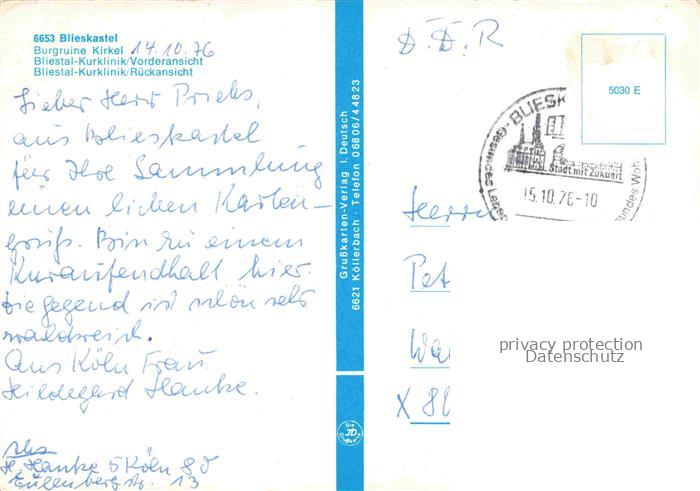 6653 Blieskastel
Burgruine Kirkel 14.10.76
Bliestal-Kurklinik/Vorderansicht
Bliestal-Kurklinik/Rückansicht
Lieber Herr Priebs,
aus Blieskastel
für Ihre Sammlung
einen lieben Karten-
gruß. Bin zu einem
Kuraufendhalt hier.
Die gegend ist schön sehr
waldreich.
Aus Köln Frau
Hildegard Hanke.
Abs
H. Hanke 5 Köln 80
Eulenbergstr. 13
Grußkarten-Verlag I. Deutsch
6621 Köllerbach · Telefon 06806/44823
D. D. R
5030 E
BLIESK
Stadt mit Zukunft
Gesundes Leben
15.10.76-10
Herrn
Pet
X 8
privacy protection
Datenschutz